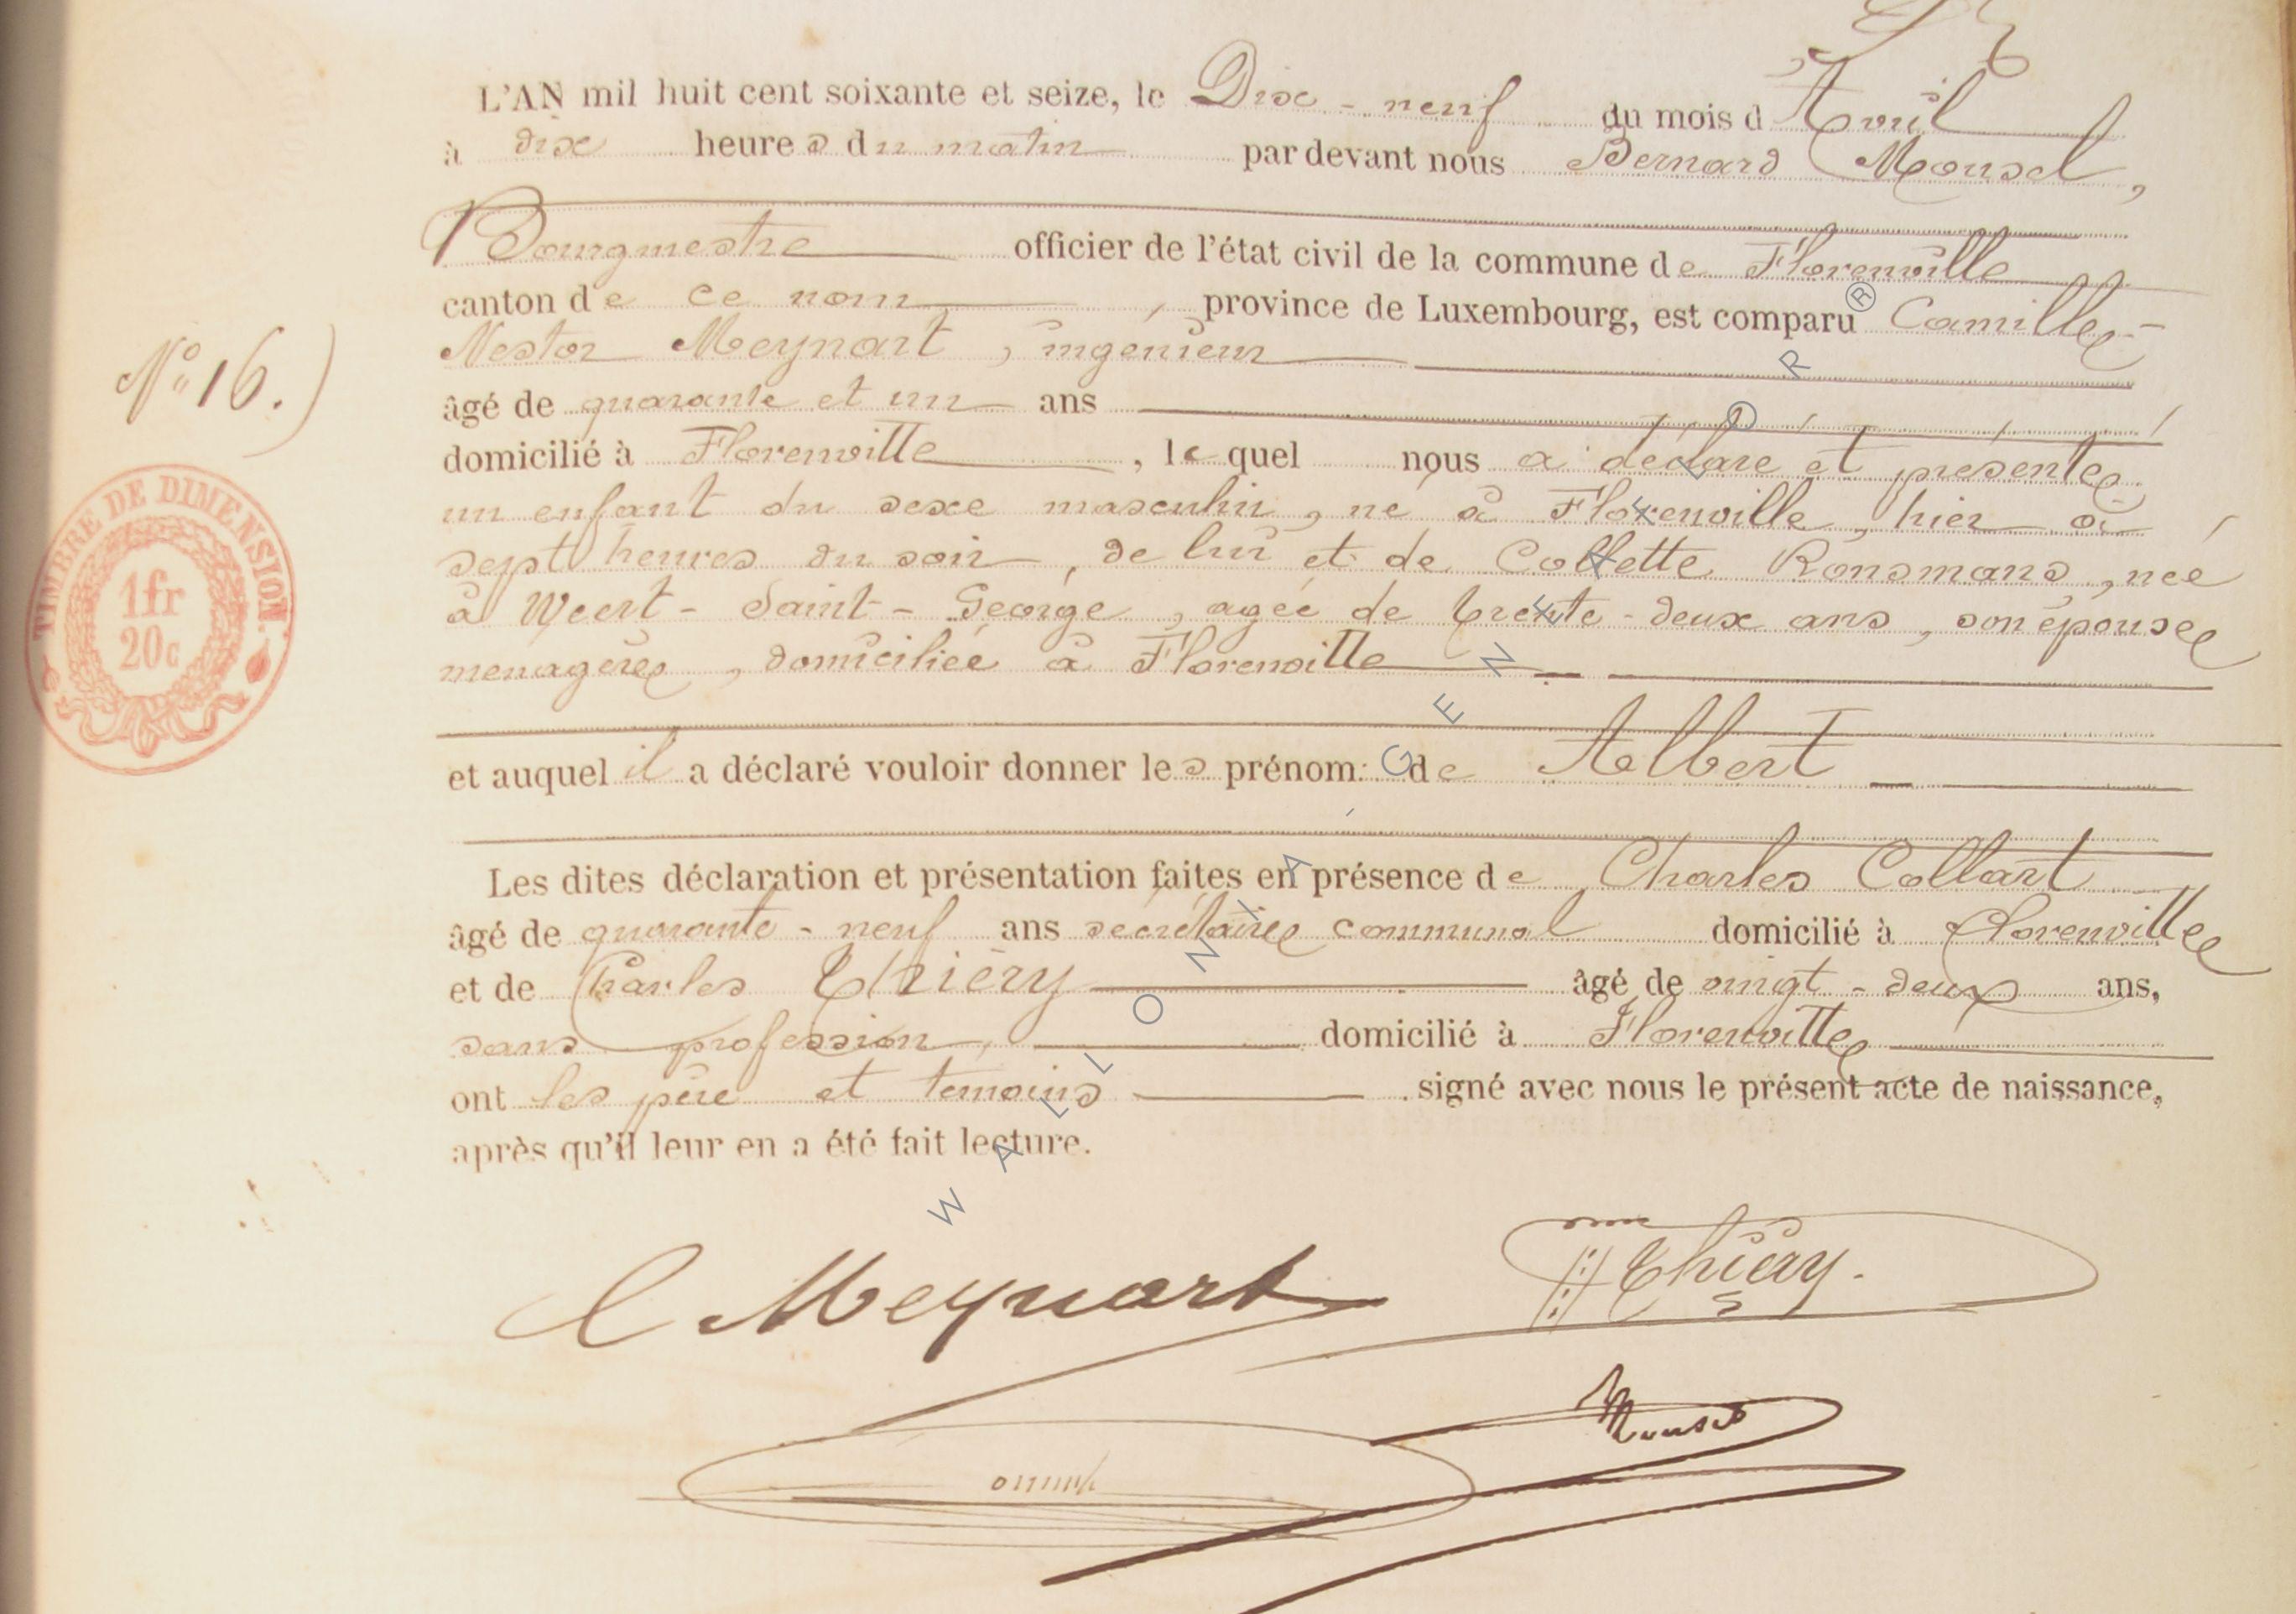 L'AN mil huit cent soixante et seize, le Dix-neuf du mois d'Avril
à dix heures du matin par devant nous Bernard Mousel,
Bourgmestre officier de l'état civil de la commune de Florenville
canton de ce nom, province de Luxembourg, est comparu Camille-
Nestor Meynart, ingénieur
âgé de quarante et un ans
domicilié à Florenville, lequel nous a déclaré et présenté
un enfant du sexe masculin, né à Florenville, hier à
sept heures du soir, de lui et de Collette Ronsmans, née
à Weert-Saint-George, agée de trente-deux ans, son épouse
menagère, domiciliée à Florenville
et auquel il a déclaré vouloir donner les prénom: de Albert
Les dites déclaration et présentation faites en présence de Charles Collart
âgé de quarante-neuf ans secrétaire communal domicilié à Florenville
et de Charles Thiéry âgé de vingt-deux ans,
sans profession, domicilié à Florenville
ont les père et temoins signé avec nous le présent acte de naissance,
après qu'il leur en a été fait lecture.
No 16.)
TIMBRE DE DIMENSION.
1fr
20c
C Meynart
Thiéry.
Mousel